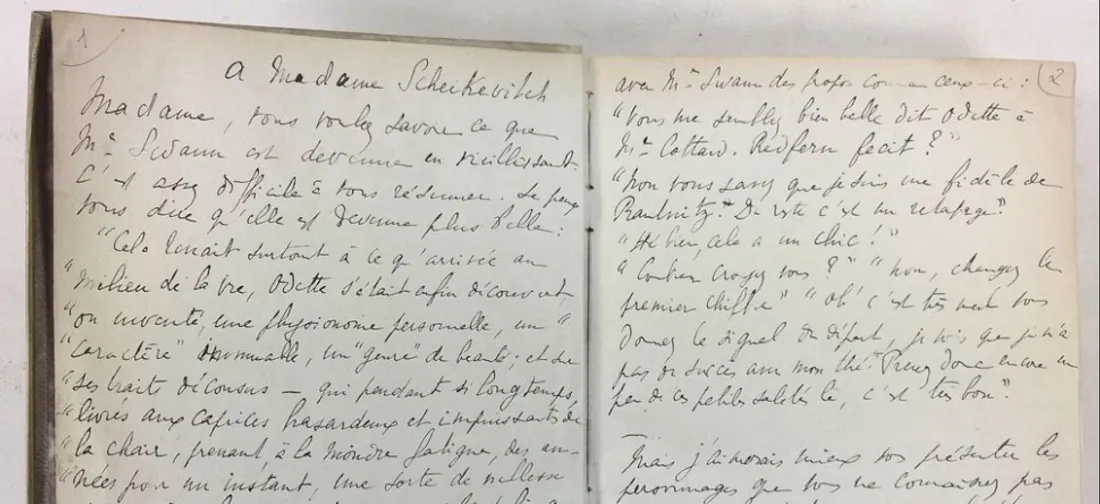 1
A Madame Scheikevitch
Madame, vous voulez savoir ce que
Me Swann est devenue en vieillissant.
C'est assez difficile à vous résumer. Je peux
vous dire qu'elle est devenue plus belle :
"Cela tenait surtout à ce qu'arrivée au
"milieu de la vie, Odette s'était enfin découvert,
"ou inventé, une physionomie personnelle, un "
"caractère" immuable, un "genre" de beauté ; et sur
"ses traits décousus — qui pendant si longtemps,
"livrés aux caprices hasardeux et impuissants de
"la chair, prenant, à la moindre fatigue, des an-
"nées pour un instant, une sorte de vieillesse
2
avec Me Swann des propos comme ceux-ci :
"Vous me semblez bien belle dit Odette à
Me Cottard. Redfern fecit ?"
"Non vous savez que je suis une fidèle de
Raudnitz. Du reste c'est un retapage."
"Hé bien, cela a un chic !"
"Combien croyez vous ?" "Non, changez le
premier chiffre" "Oh ! c'est très mal vous
donnez le signal du départ, je vois que je n'ai
pas de succès avec mon thé." "Prenez donc encore un
peu de ces petites saletés là, c'est très bon."
Mais j'aimerais mieux vous présenter les
personnages que vous ne connaissez pas